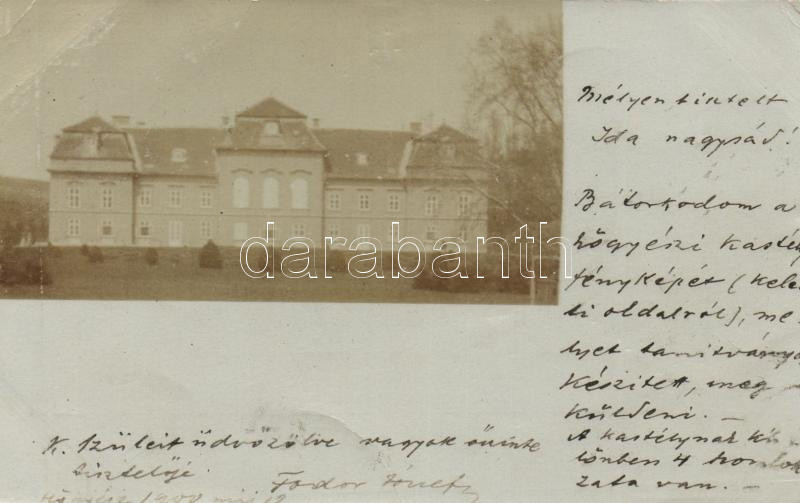 Mélyen tisztelt
Ida nagysád!
Bátorkodom a
hőgyészi kastély
fényképét (kele-
ti oldalról), me-
lyet tanítványo
készített, meg
küldeni. –
A kastélynak kü-
lönben 4 homlok
zata van. –
K. Szüleit üdvözölve vagyok őszinte
tisztelője
Fodor József
1900
darabanth.com